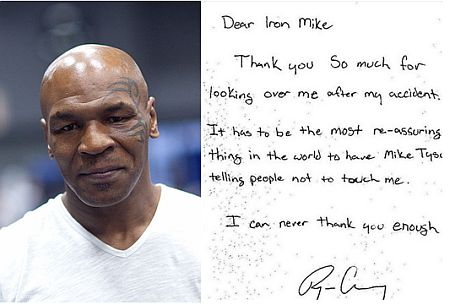 Dear Iron Mike
Thank you So much for
looking over me after my accident.
It has to be the most re-assuring
thing in the world to have Mike Tyso
telling people not to touch me.
I can never thank you enough